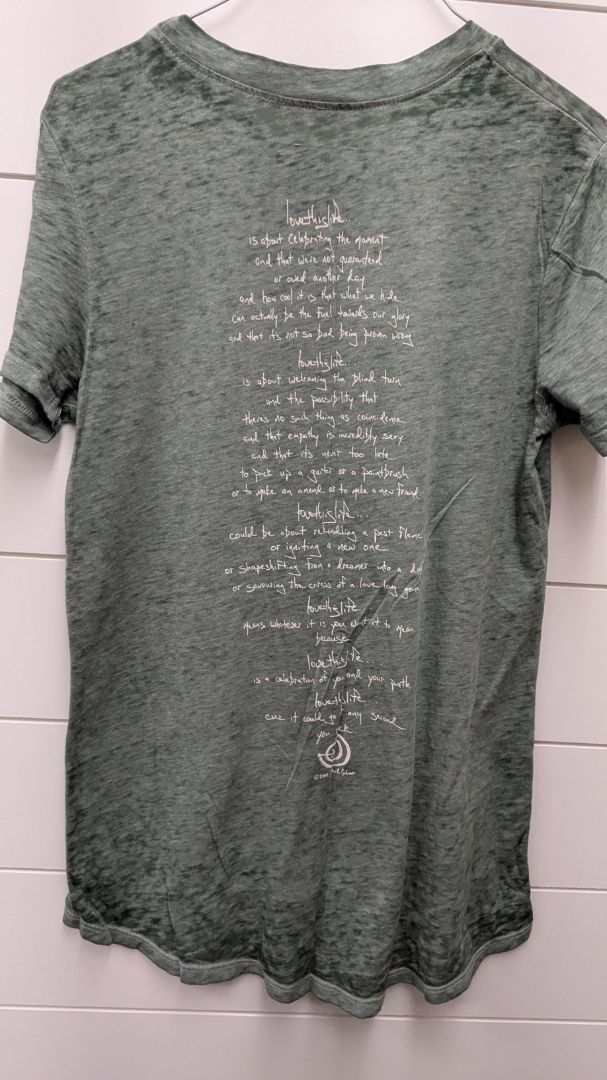 lovethislife...
is about celebrating the moment
and that we're not guaranteed
or owed another day
and how cool it is that what we hide
can actually be the fuel towards our glory
and that it's not so bad being proven wrong
lovethislife...
is about welcoming the blind turn
and the possibility that
there's no such thing as coincidence
and that empathy is incredibly sexy
and that it's never too late
to pick up a guitar or a paintbrush
or to make an amend or to make a new friend
lovethislife...
could be about rekindling a past flame
or igniting a new one
or shapeshifting from a dreamer into a
or savouring the caress of a love long gone
lovethislife.
means whatever it is you want it to mean
because
lovethislife....
is a celebration of you and your path
lovethislife...
cuz it could go any second
you